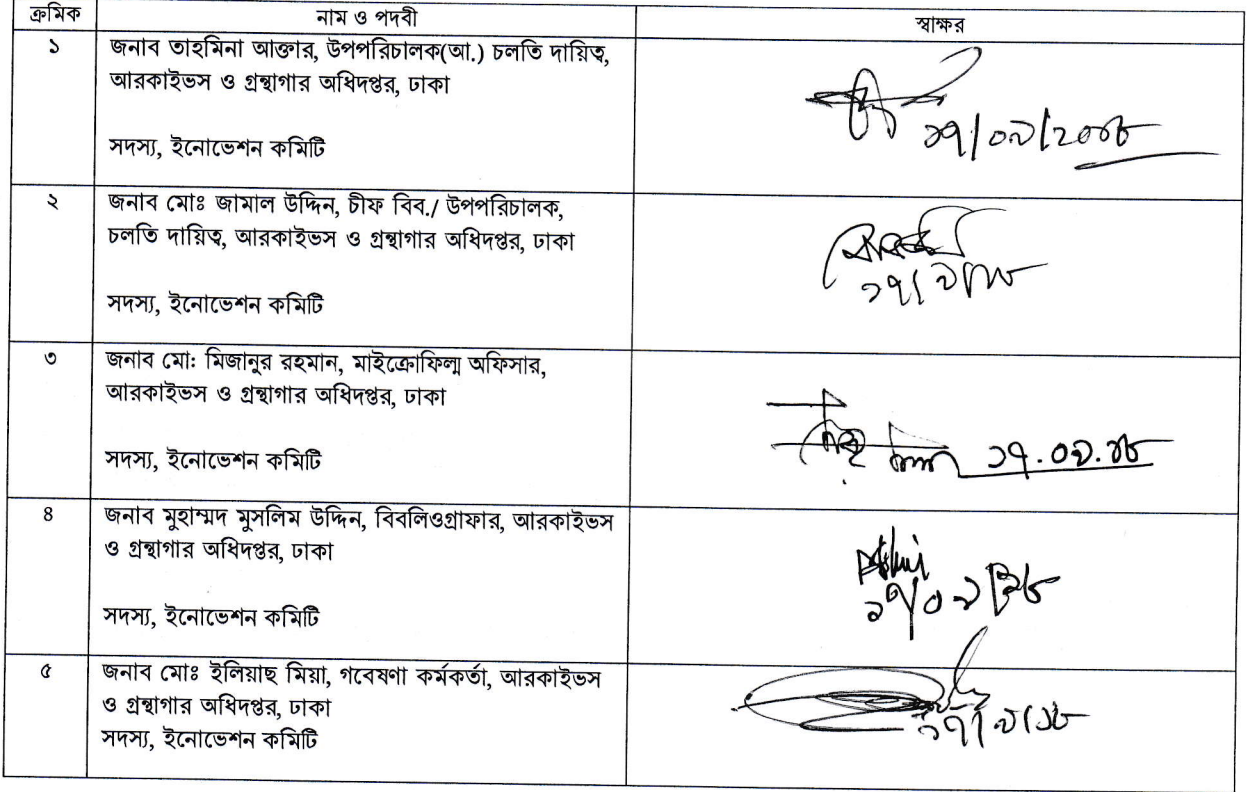 ক্রমিক নাম ও পদবী স্বাক্ষর
১ জনাব তাহমিনা আক্তার, উপপরিচালক(আ.) চলতি দায়িত্ব,
আরকাইভস ও গ্রন্থাগার অধিদপ্তর, ঢাকা
সদস্য, ইনোভেশন কমিটি
১৭/০৯/২০১৮
২ জনাব মোঃ জামাল উদ্দিন, চীফ বিব./ উপপরিচালক,
চলতি দায়িত্ব, আরকাইভস ও গ্রন্থাগার অধিদপ্তর, ঢাকা
১৭/৯/১৮
সদস্য, ইনোভেশন কমিটি
৩ জনাব মো: মিজানুর রহমান, মাইক্রোফিল্ম অফিসার,
আরকাইভস ও গ্রন্থাগার অধিদপ্তর, ঢাকা
সদস্য, ইনোভেশন কমিটি ১৭.০৯.১৮
৪ জনাব মুহাম্মদ মুসলিম উদ্দিন, বিবলিওগ্রাফার, আরকাইভস
ও গ্রন্থাগার অধিদপ্তর, ঢাকা
সদস্য, ইনোভেশন কমিটি ১৭/০৯/১৮
৫ জনাব মোঃ ইলিয়াছ মিয়া, গবেষণা কর্মকর্তা, আরকাইভস
ও গ্রন্থাগার অধিদপ্তর, ঢাকা
সদস্য, ইনোভেশন কমিটি ১৭/৯/১৮